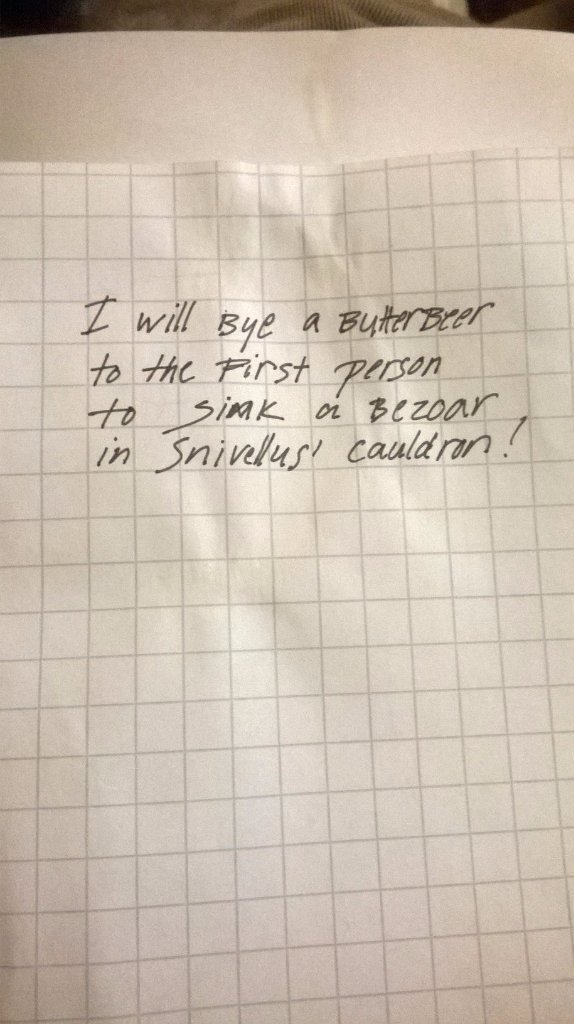 I will Bye a ButterBeer
to the First person
to sink a Bezoar
in Snivellus' cauldron!